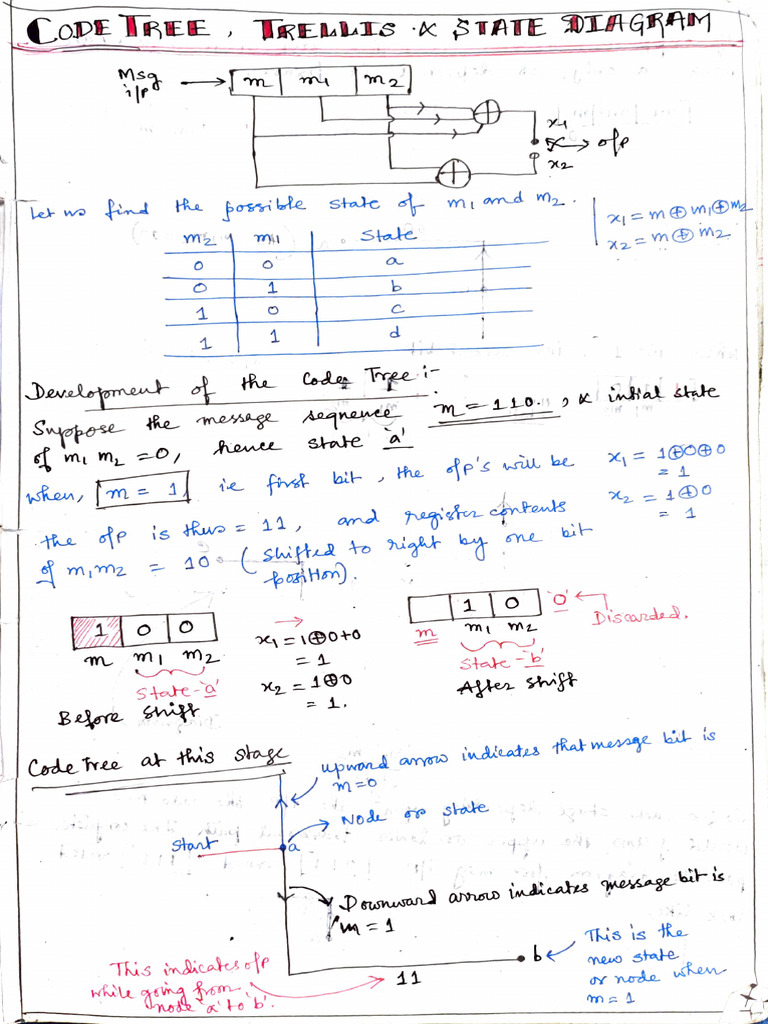 CODE TREE, TRELLIS & STATE DIAGRAM
Msg i/p
m m1 m2
x1
o/p
x2
Let us find the possible state of m1 and m2.
x1 = m ⊕ m1 ⊕ m2
x2 = m ⊕ m2
m2 m1 State
0 0 a
0 1 b
1 0 c
1 1 d
Development of the Code Tree :-
Suppose the message sequence m = 110. , & initial state
of m1 m2 = 0, hence state 'a'
when, m = 1 i.e first bit, the o/p's will be
x1 = 1⊕0⊕0
= 1
x2 = 1⊕0
= 1
the o/p is thus = 11, and register contents
of m1m2 = 10 (shifted to right by one bit
position).
1 0 0
m m1 m2
State-'a'
Before shift
x1 = 1⊕0+0
= 1
x2 = 1⊕0
= 1.
1 0 '0'
m m1 m2
Discarded.
State-'b'
After shift
Code Tree at this stage
upward arrow indicates that message bit is
m=0
Node or state
Start
a
Downward arrow indicates message bit is
m = 1
b
This is the
new state
or node when
m=1
This indicates o/p
while going from
node 'a' to 'b'.
11